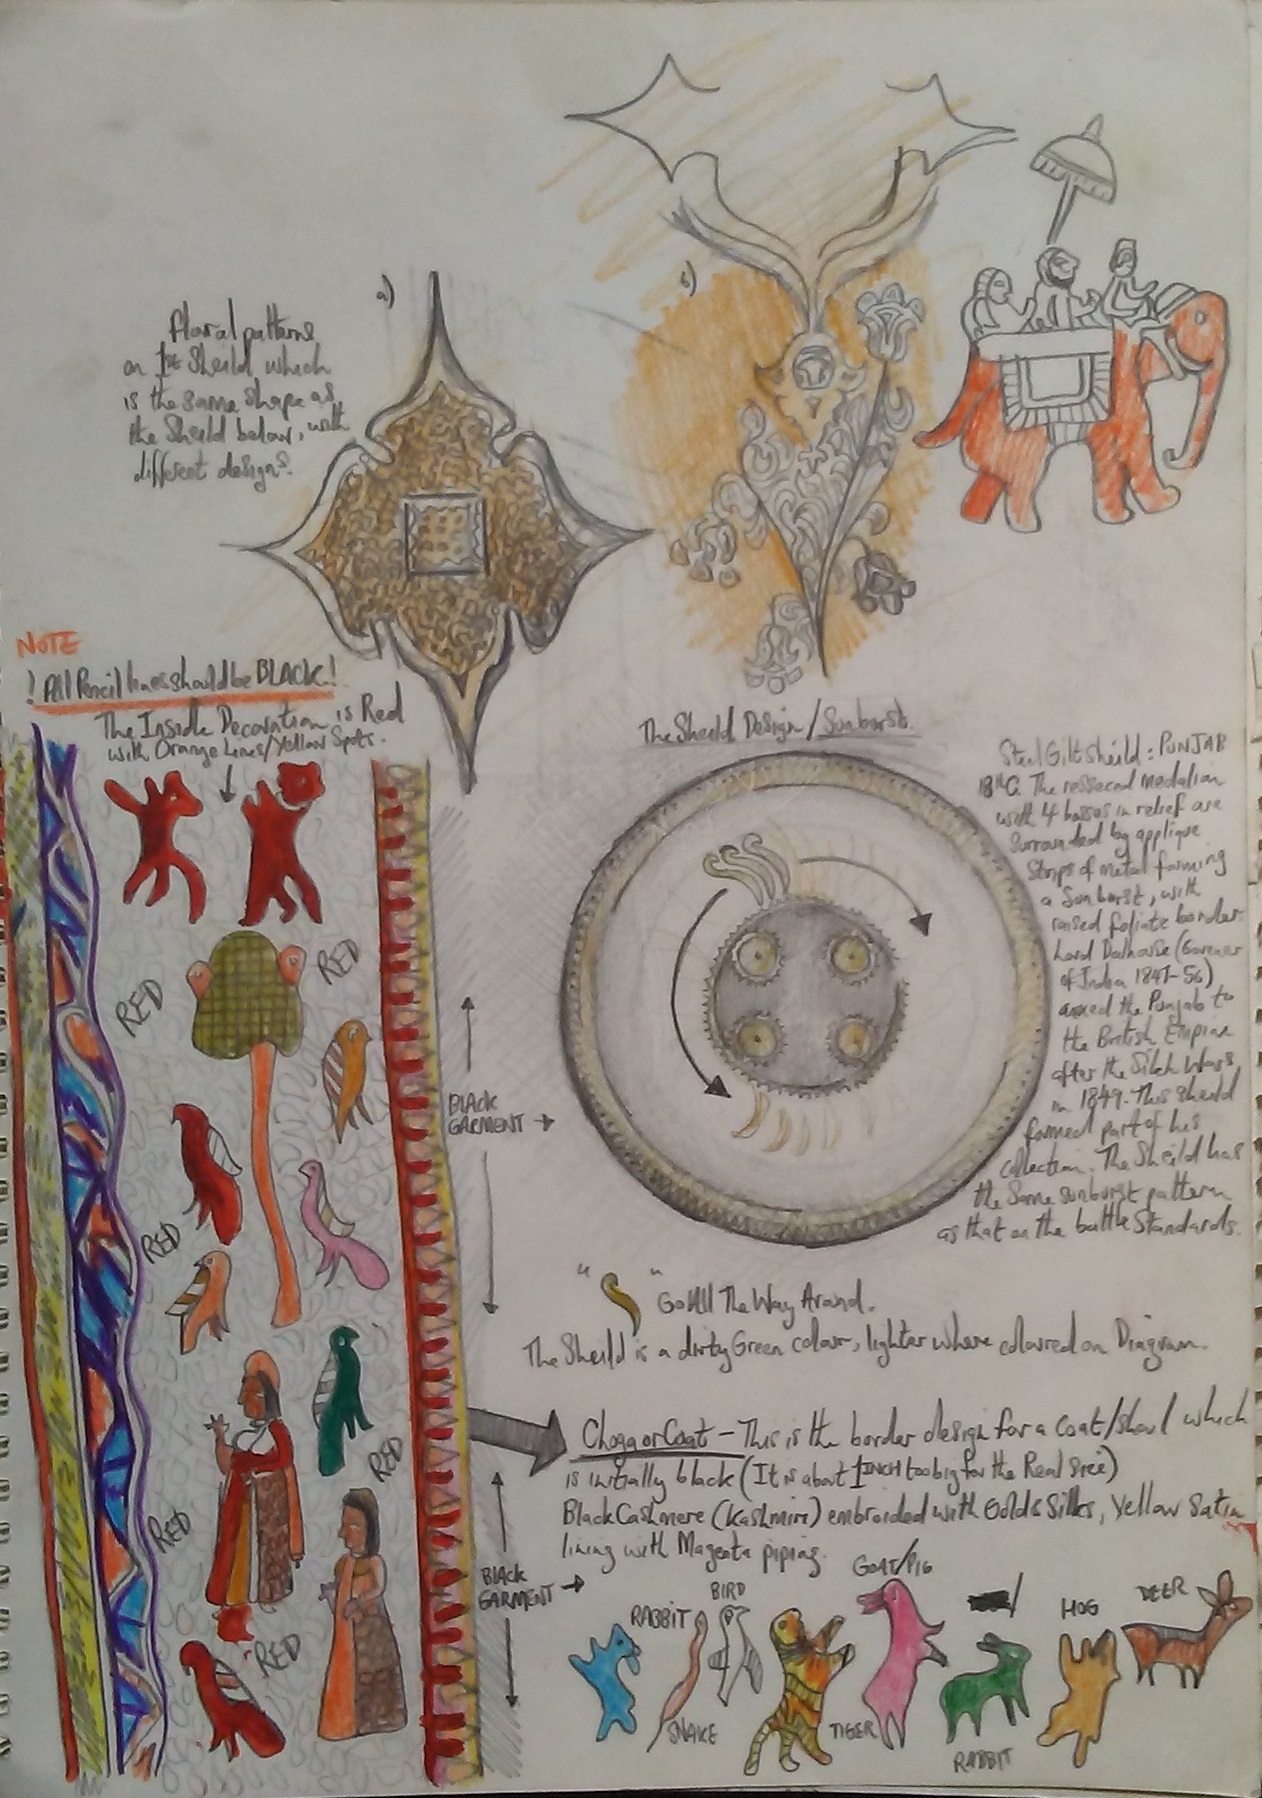 a)
b)
Floral patterns
on 1st Sheild which
is the same shape as
the Sheild below, with
different designs.
NOTE
! All Pencil lines should be BLACK!
The Inside Decoration is Red
with Orange Lines/Yellow Spots.
RED
RED
RED
RED
RED
RED
BLACK
GARMENT
BLACK
GARMENT
The Sheild Design/Sunburst.
Steel Gilt sheild: PUNJAB
18thC. The ressesed medalian
with 4 bosses in relief are
surrounded by applique
Strips of metal forming
a Sunburst, with
raised foliate border.
Lord Dalhousie (Govener
of India 1847-56)
anexed the Punjab to
the British Empire
after the Sikh Wars
in 1849. This sheild
formed part of his
collection. The Sheild has
the Same sunburst pattern
as that on the battle Standards.
" " Go All The Way Around.
The Sheild is a dirty Green colour, lighter where coloured on Diagram.
Chogg or Coat - This is the border design for a coat/shawl which
is initially black (It is about 1 INCH too big for the Real Size)
Black Cashmere (Kashmiri) embroided with Gold & Silks, Yellow Satin
lining with Magenta piping.
RABBIT
SNAKE
BIRD
TIGER
GOAT/PIG
RABBIT
HOG
DEER